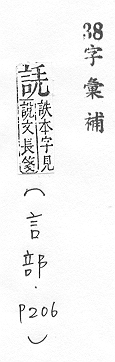 38字彙補
本字見
說文長箋
(言部.P206)